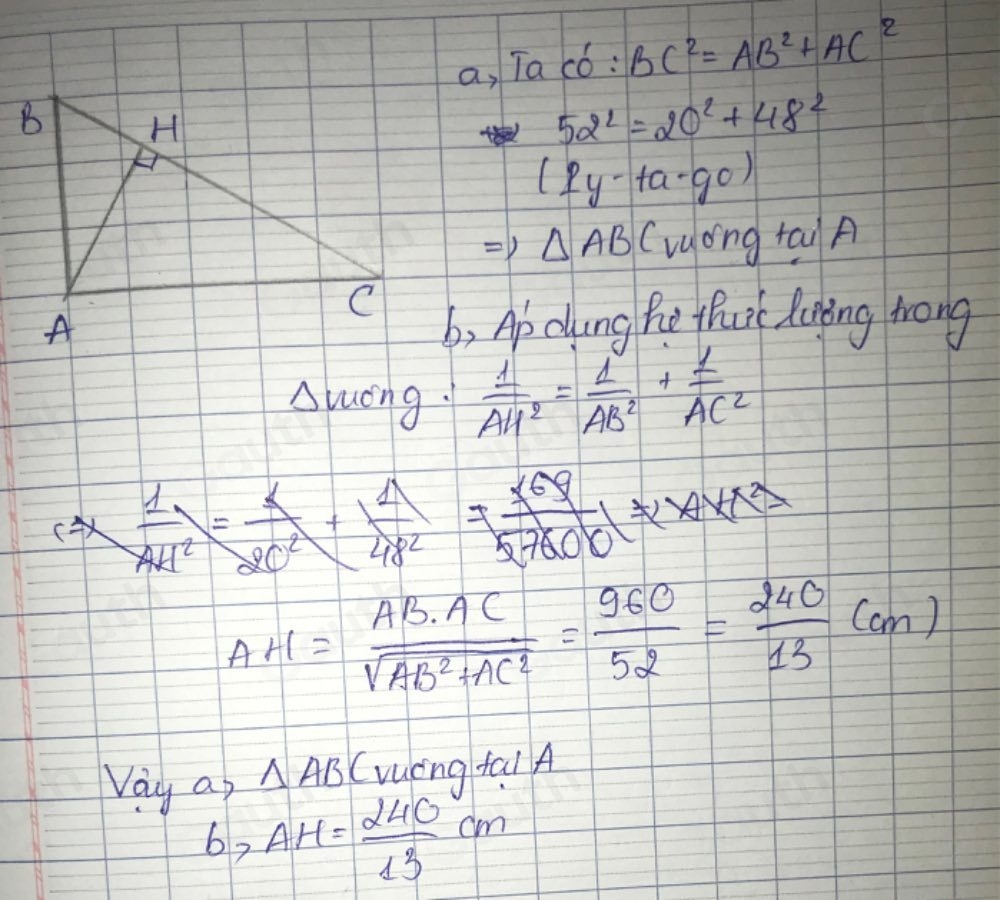 B
H
A
C
a, Ta có : BC² = AB² + AC²
52² = 20² + 48²
(Py-ta-go)
=> Δ ABC vuông tại A
b, Áp dụng hệ thức lượng trong
Δ vuông : 1/AH² = 1/AB² + 1/AC²
<=> 1/AH² = 1/20² + 1/48² = 169/57600 => AH² =
AH = AB.AC/√AB²+AC² = 960/52 = 240/13 (cm)
Vậy a, Δ ABC vuông tại A
b, AH = 240/13 cm